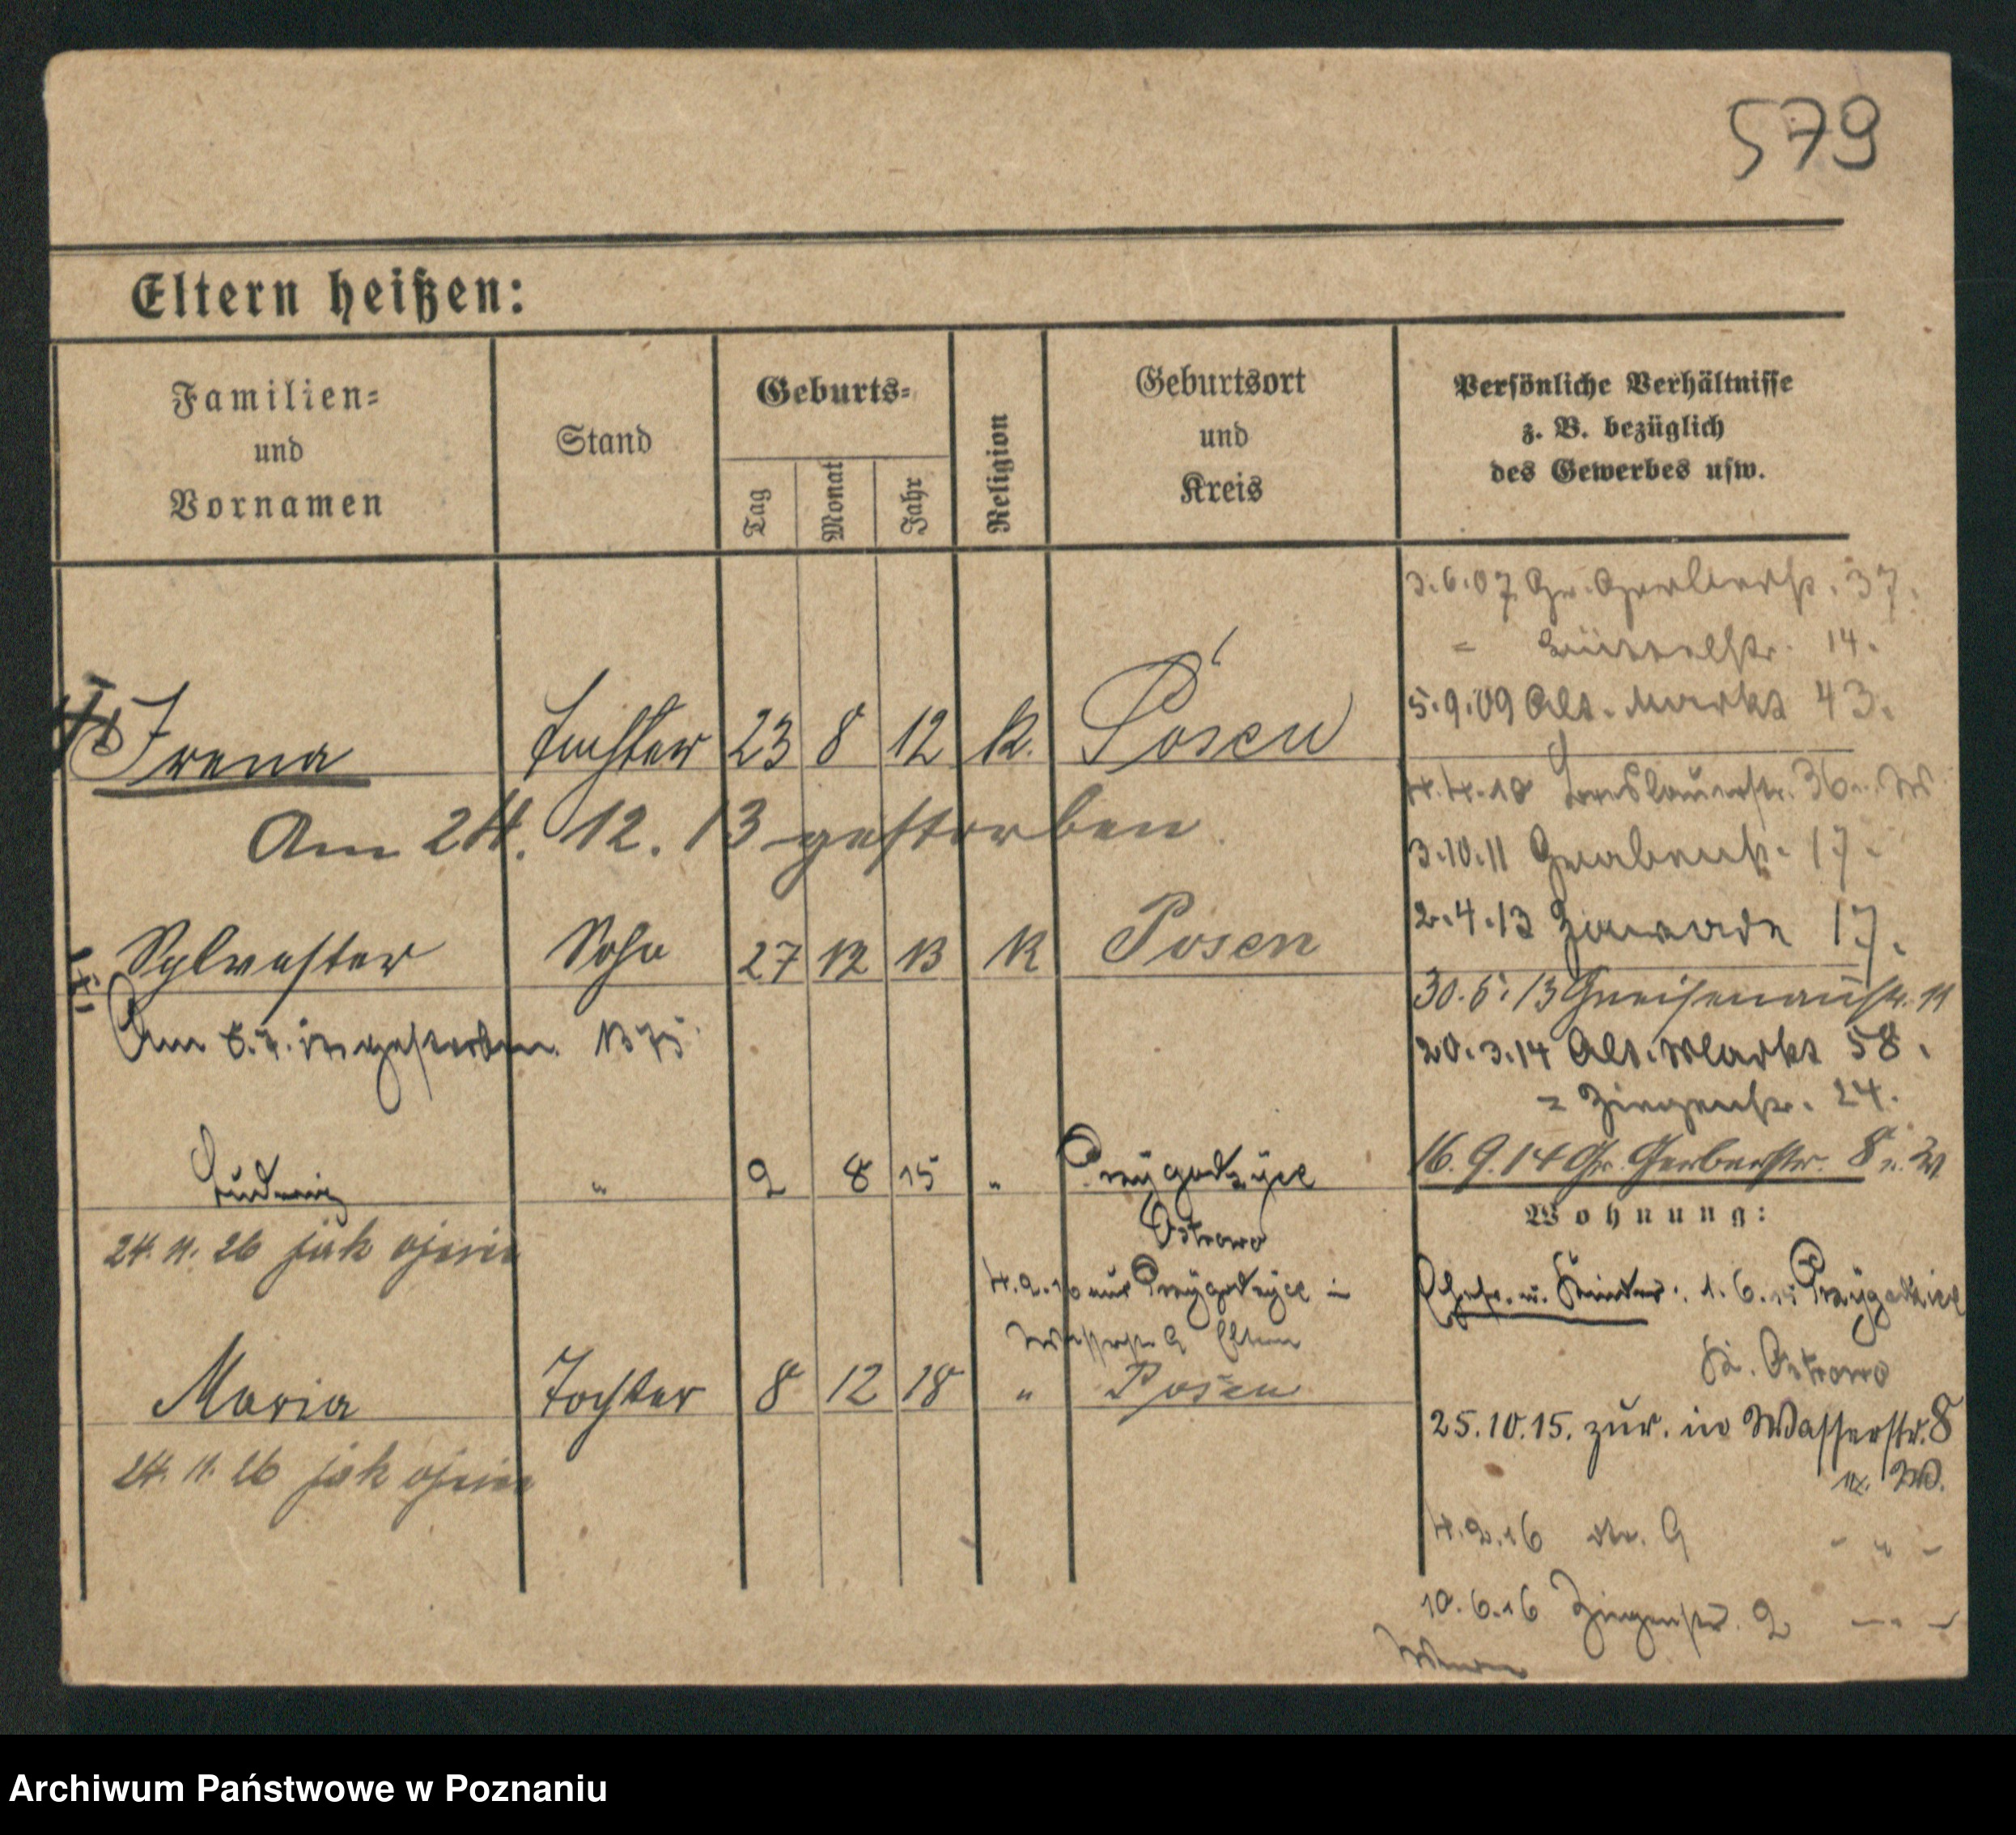 579
Eltern heißen:
Familien=
und
Vornamen
Stand
Geburts=
Tag
Monat
Jahr
Religion
Geburtsort
und
Kreis
Persönliche Verhältnisse
z. B. bezüglich
des Gewerbes usw.
3.6.07 Gr. Gerberstr. 37.
= Büttelstr. 14.
5.9.09 Alt. Markt 43.
Irena Tochter 23 8 12 k. Posen
4.4.10 Breslauerstr. 36
Am 24. 12. 13 gestorben
3.10.11 Grabenstr. 17.
2.4.13 Zawade 17.
Sylvester Sohn 27 12 13 k Posen
30.5.13 Gneisenaustr. 11
Am gestorben
20.3.14 Alt. Markt 58.
= Ziegenstr. 24.
16.9.14 Gr. Gerberstr. 8
Ludwig " 2 8 15 " Przygodzyce
Ostrowo
Wohnung:
24. 11. 26 jak ojciec
aus Przygodzyce in
Wasserstr 9 Eltern
Ehefr. u. Kinder: 1. 6. 15 Przygodzice
Kr. Ostrowo
Maria Tochter 8 12 18 " Posen
25.10.15. zur. in Wasserstr. 8
24. 11. 26 jak ojciec
4.2.16 9 - " -
10.6.16 Ziegenstr. 2 - " -
Archiwum Państwowe w Poznaniu